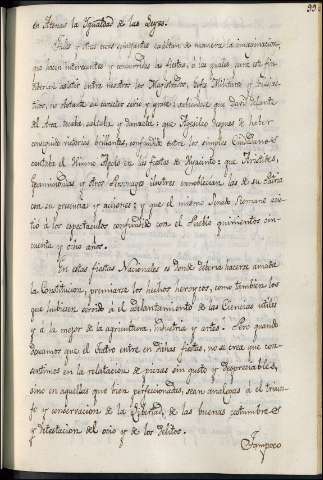 99
en Atenas la Igualdad de las Leyes.
Tales y otras circunstancias exâltan de manera la imaginacion,
que hacen interesantes y concurridas las fiestas, à las quales, para este fin,
debieran asistir entre nosotros los Magistrados, Gefes Militares y Eclesias-
ticos, no obstante su caracter serio y grave: sabiendose que David delante
del Arca tocaba, saltaba y danzaba: que Agesilao despues de haber
conseguido victorias brillantes, confundido entre los simples Ciudadanos
cantaba el Himno Apolo en las fiestas de Hyacinto: que Aristides,
Epaminondas y otros Personages ilustres ennoblecian las de su Patria
con su presencia y acciones; y que el mismo Senado Romano asis-
tió à los espectaculos confundido con el Pueblo quinientos cin-
cuenta y ocho años.
En estas fiestas Nacionales es donde deberia hacerse amable
la Constitucion, premiarse los hechos heroycos, como tambien los
que hubiesen servido à el adelantamiento de las Ciencias utiles
y à la mejor de la agricultura, industria y artes. Pero quando
deseamos que el Teatro entre en dichas fiestas, no se crea que con-
sentimos en la relatacion de piezas sin gusto y despreciables,
sino en aquellas que bien perfeccionadas, sean analogas à el triun-
fo y conservacion de la Libertad, de las buenas costumbres
y detestacion del ocio y de los delitos.
Tampoco